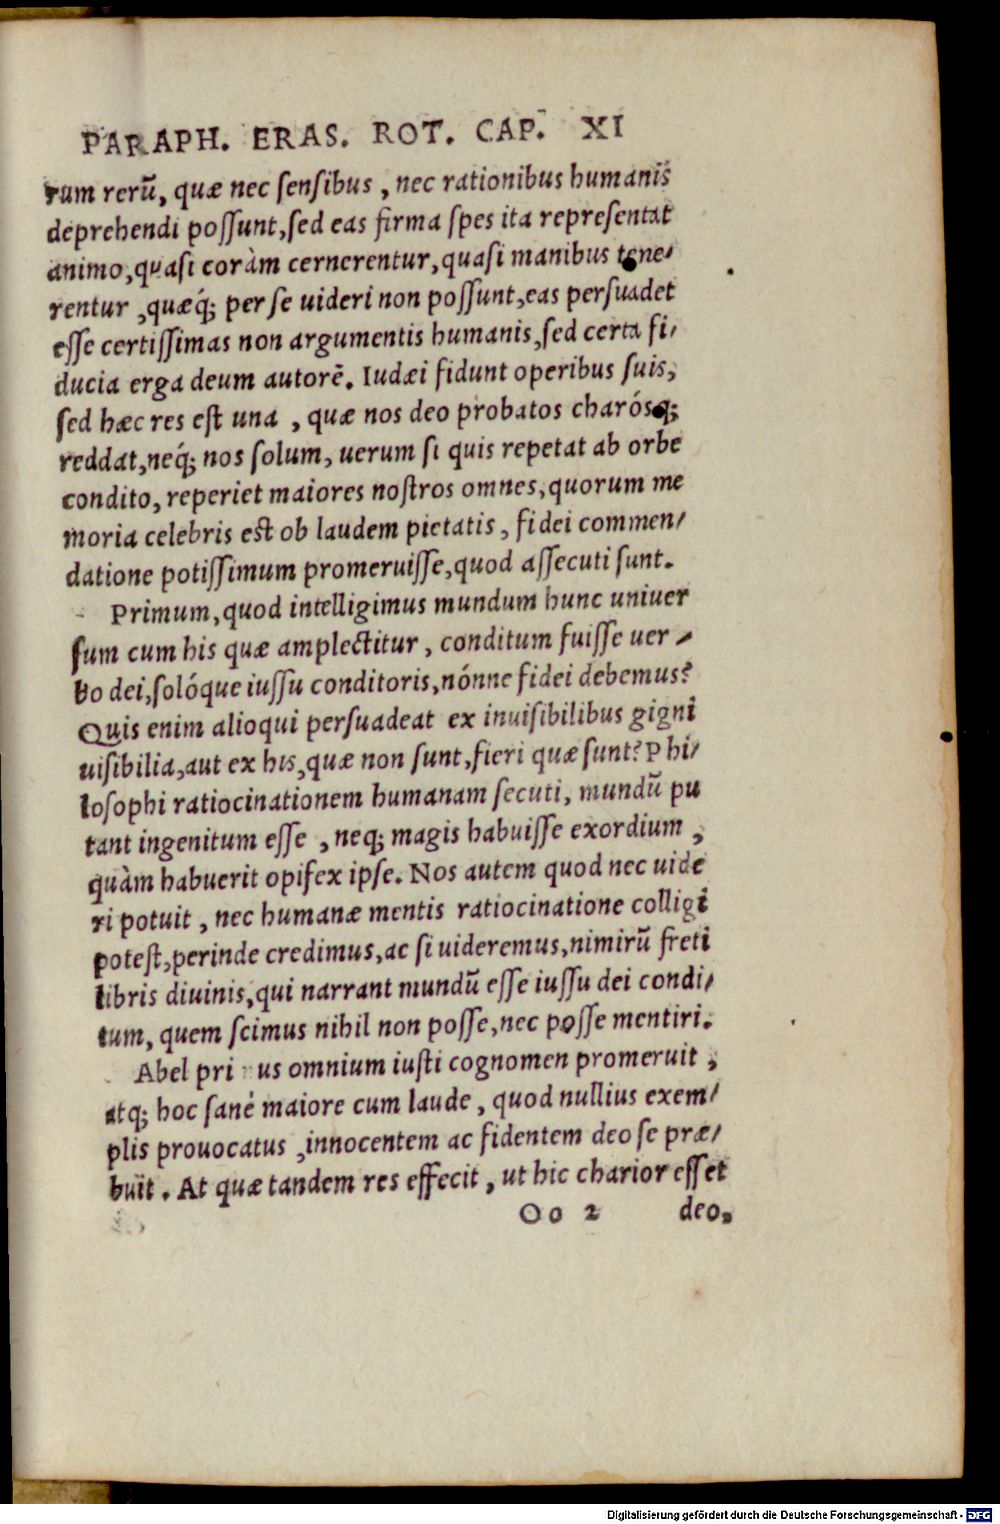 PARAPH. ERAS. ROT. CAP. XI
rum rerū, quæ nec sensibus, nec rationibus humanis
deprehendi possunt, sed eas firma spes ita repræsentat
animo, quasi coràm cernerentur, quasi manibus tene/
rentur, quæq́; per se uideri non possunt, eas persuadet
esse certissimas non argumentis humanis, sed certa fi/
ducia erga deum autorē. Iudæi fidunt operibus suis,
sed hæc res est una, quæ nos deo probatos charósq;
reddat, neq́; nos solum, uerum si quis repetat ab orbe
condito, reperiet maiores nostros omnes, quorum me
moria celebris est ob laudem pietatis, fidei commen/
datione potissimum promeruisse, quod assecuti sunt.
Primum, quod intelligimus mundum hunc uniuer
sum cum his quæ amplectitur, conditum fuisse uer/
bo dei, solóque iussu conditoris, nónne fidei debemus?
Quis enim alioqui persuadeat ex inuisibilibus gigni
uisibilia, aut ex his, quæ non sunt, fieri quæ sunt? Phi/
losophi ratiocinationem humanam secuti, mundū pu
tant ingenitum esse, neq; magis habuisse exordium,
quàm habuerit opifex ipse. Nos autem quod nec uide
ri potuit, nec humanæ mentis ratiocinatione colligi
potest, perinde credimus, ac si uideremus, nimirū freti
libris diuinis, qui narrant mundū esse iussu dei condi/
tum, quem scimus nihil non posse, nec posse mentiri.
Abel pri us omnium iusti cognomen promeruit,
atq; hoc sanè maiore cum laude, quod nullius exem/
plis prouocatus, innocentem ac fidentem deo se præ/
buit. At quæ tandem res effecit, ut hic charior esset
Oo 2 deo,
Digitalisierung gefördert durch die Deutsche Forschungsgemeinschaft - DFG